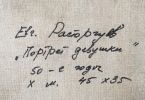 Евг. Расторгуев
„Портрет девушки"
50-е годы
х. м. 45 х 35